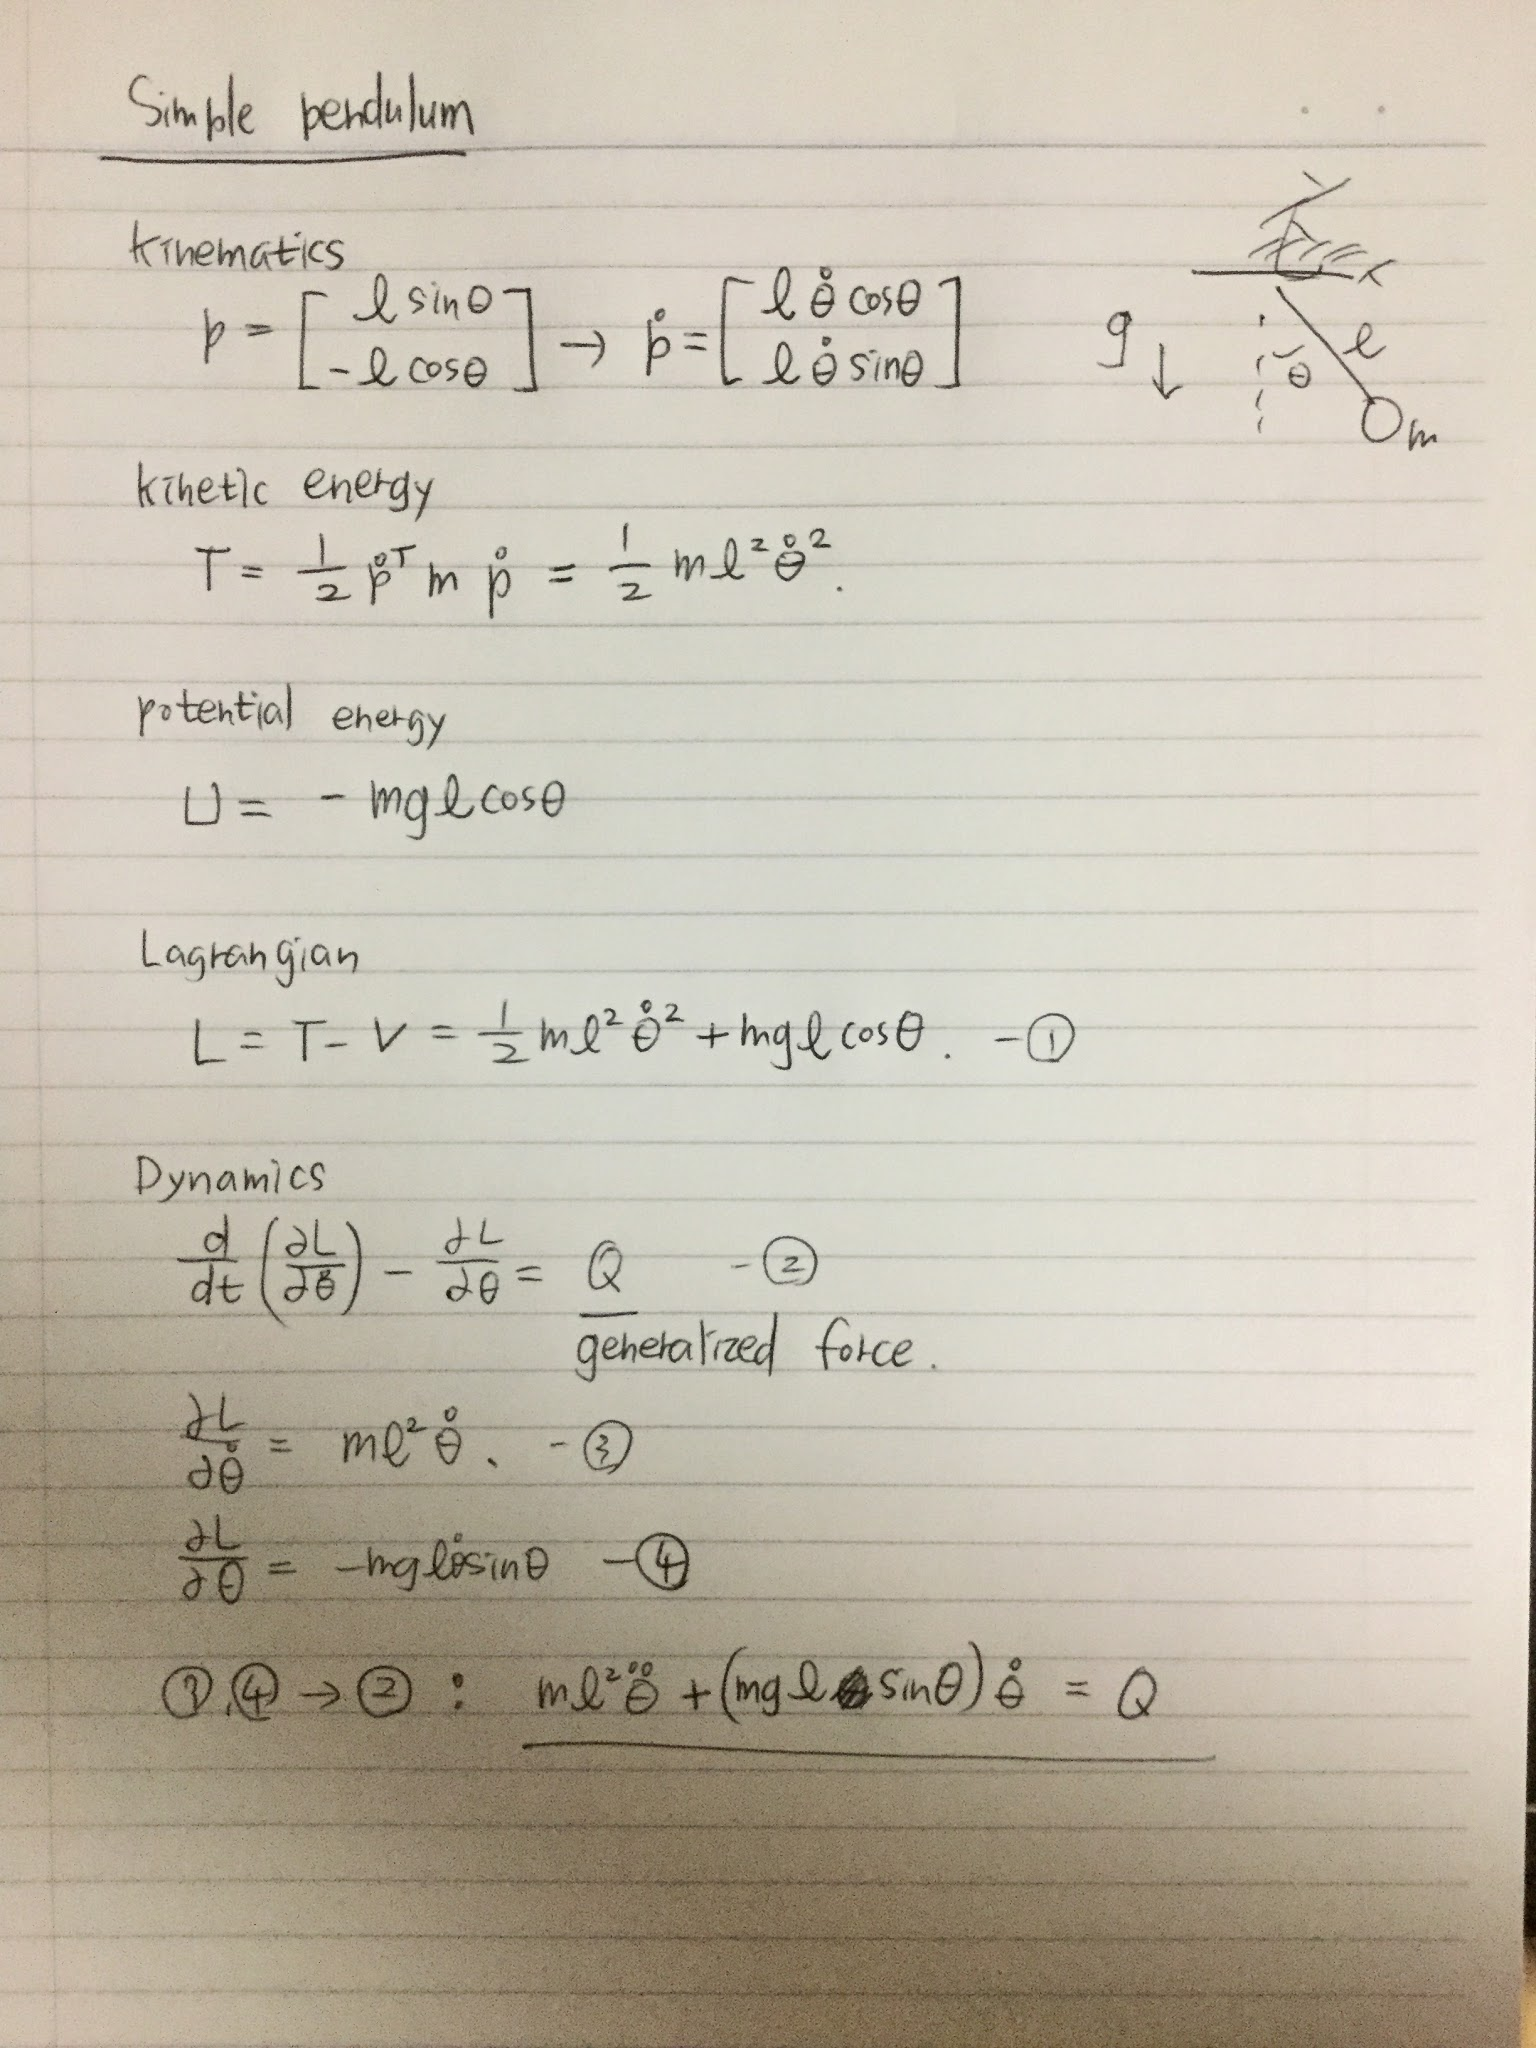 Simple pendulum
kinematics
p = [ l sinθ ; -l cosθ ] → ṗ = [ l θ̇ cosθ ; l θ̇ sinθ ]
g ↓ θ l m
kinetic energy
T = 1/2 ṗᵀ m ṗ = 1/2 m l² θ̇².
potential energy
U = - mg l cosθ
Lagrangian
L = T - V = 1/2 m l² θ̇² + mg l cosθ. - ①
Dynamics
d/dt (∂L/∂θ̇) - ∂L/∂θ = Q - ②
generalized force.
∂L/∂θ̇ = m l² θ̇. - ③
∂L/∂θ = -mg l θ̇ sinθ - ④
③,④ → ② : m l² θ̈ + (mg l sinθ) θ̇ = Q